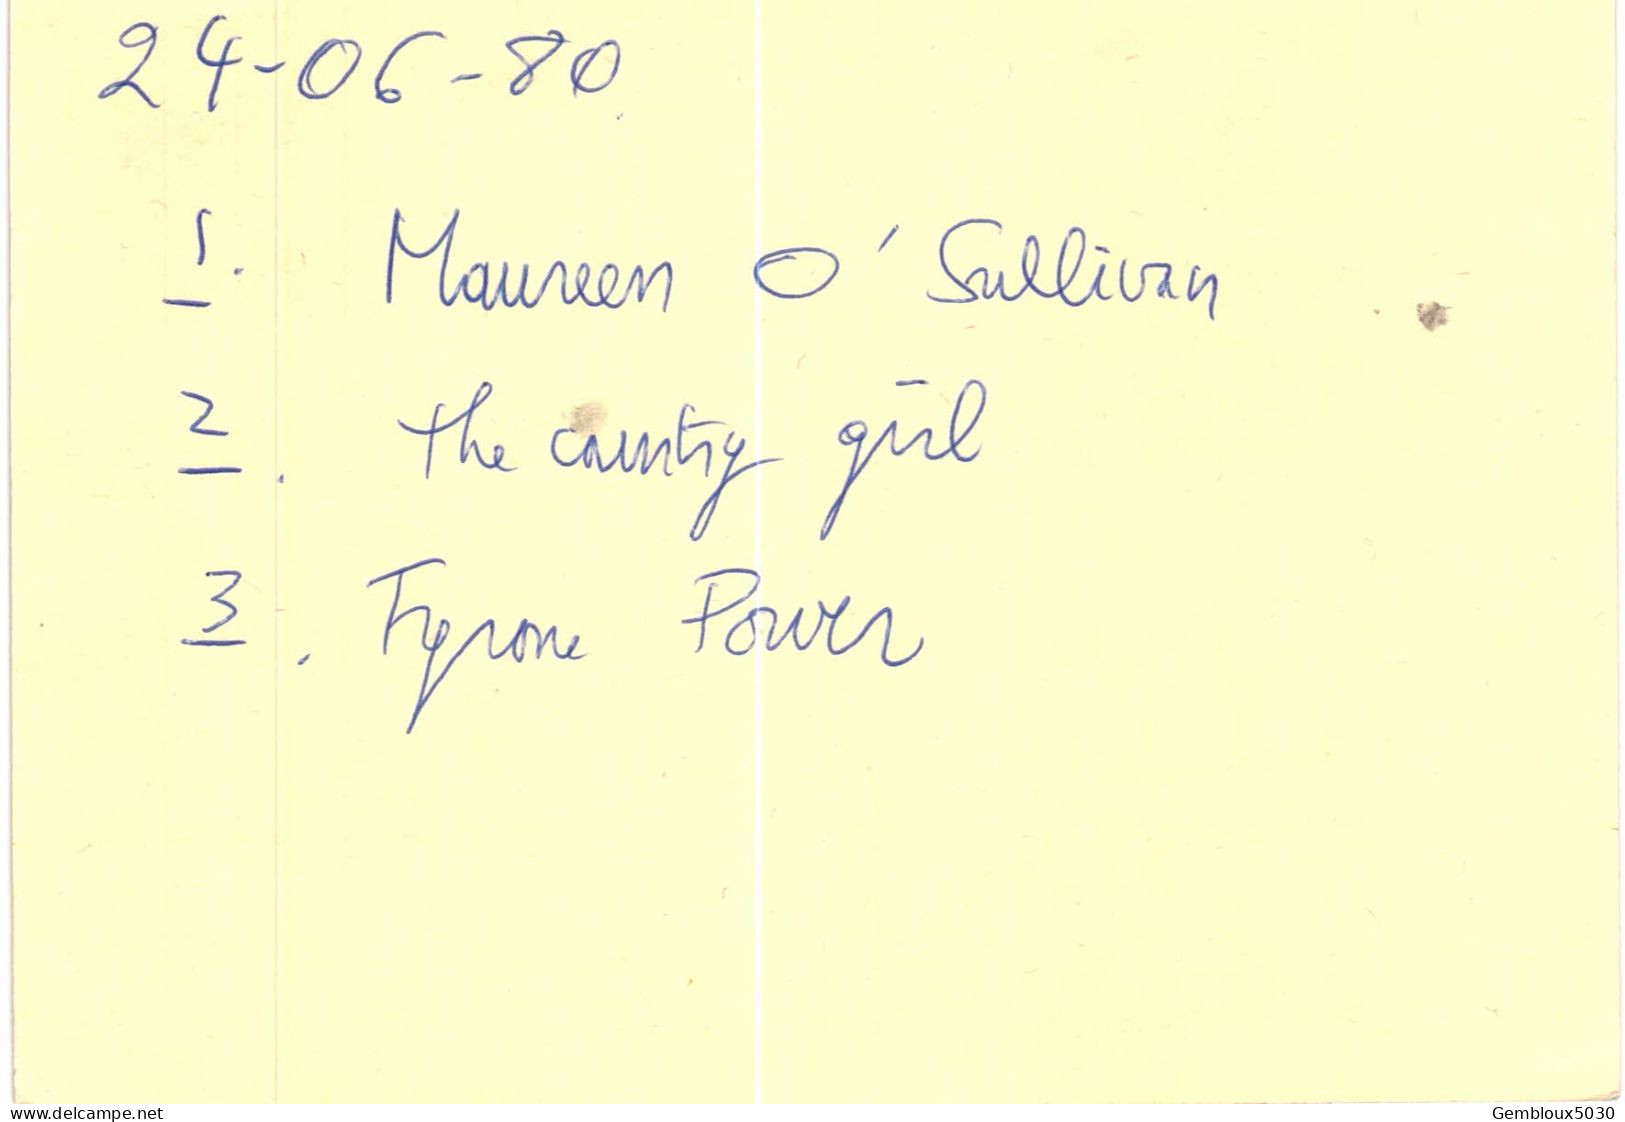 24-06-80
1. Maureen O'Sullivan
2. the country girl
3. Tyrone Power
www.delcampe.net
Gembloux5030